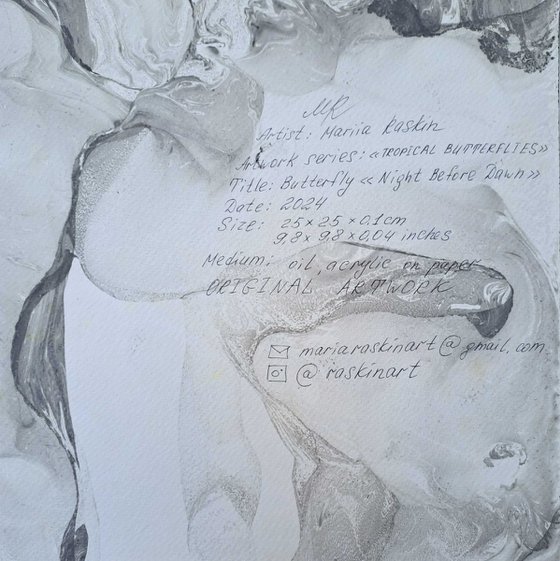 MR
Artist: Mariia Raskin
Artwork series: «TROPICAL BUTTERFLIES»
Title: Butterfly «Night Before Dawn»
Date: 2024
Size: 25×25×0,1cm
9,8×9,8×0,04 inches
Medium: oil, acrylic on paper
ORIGINAL ARTWORK
mariaraskinart@gmail.com
@raskinart